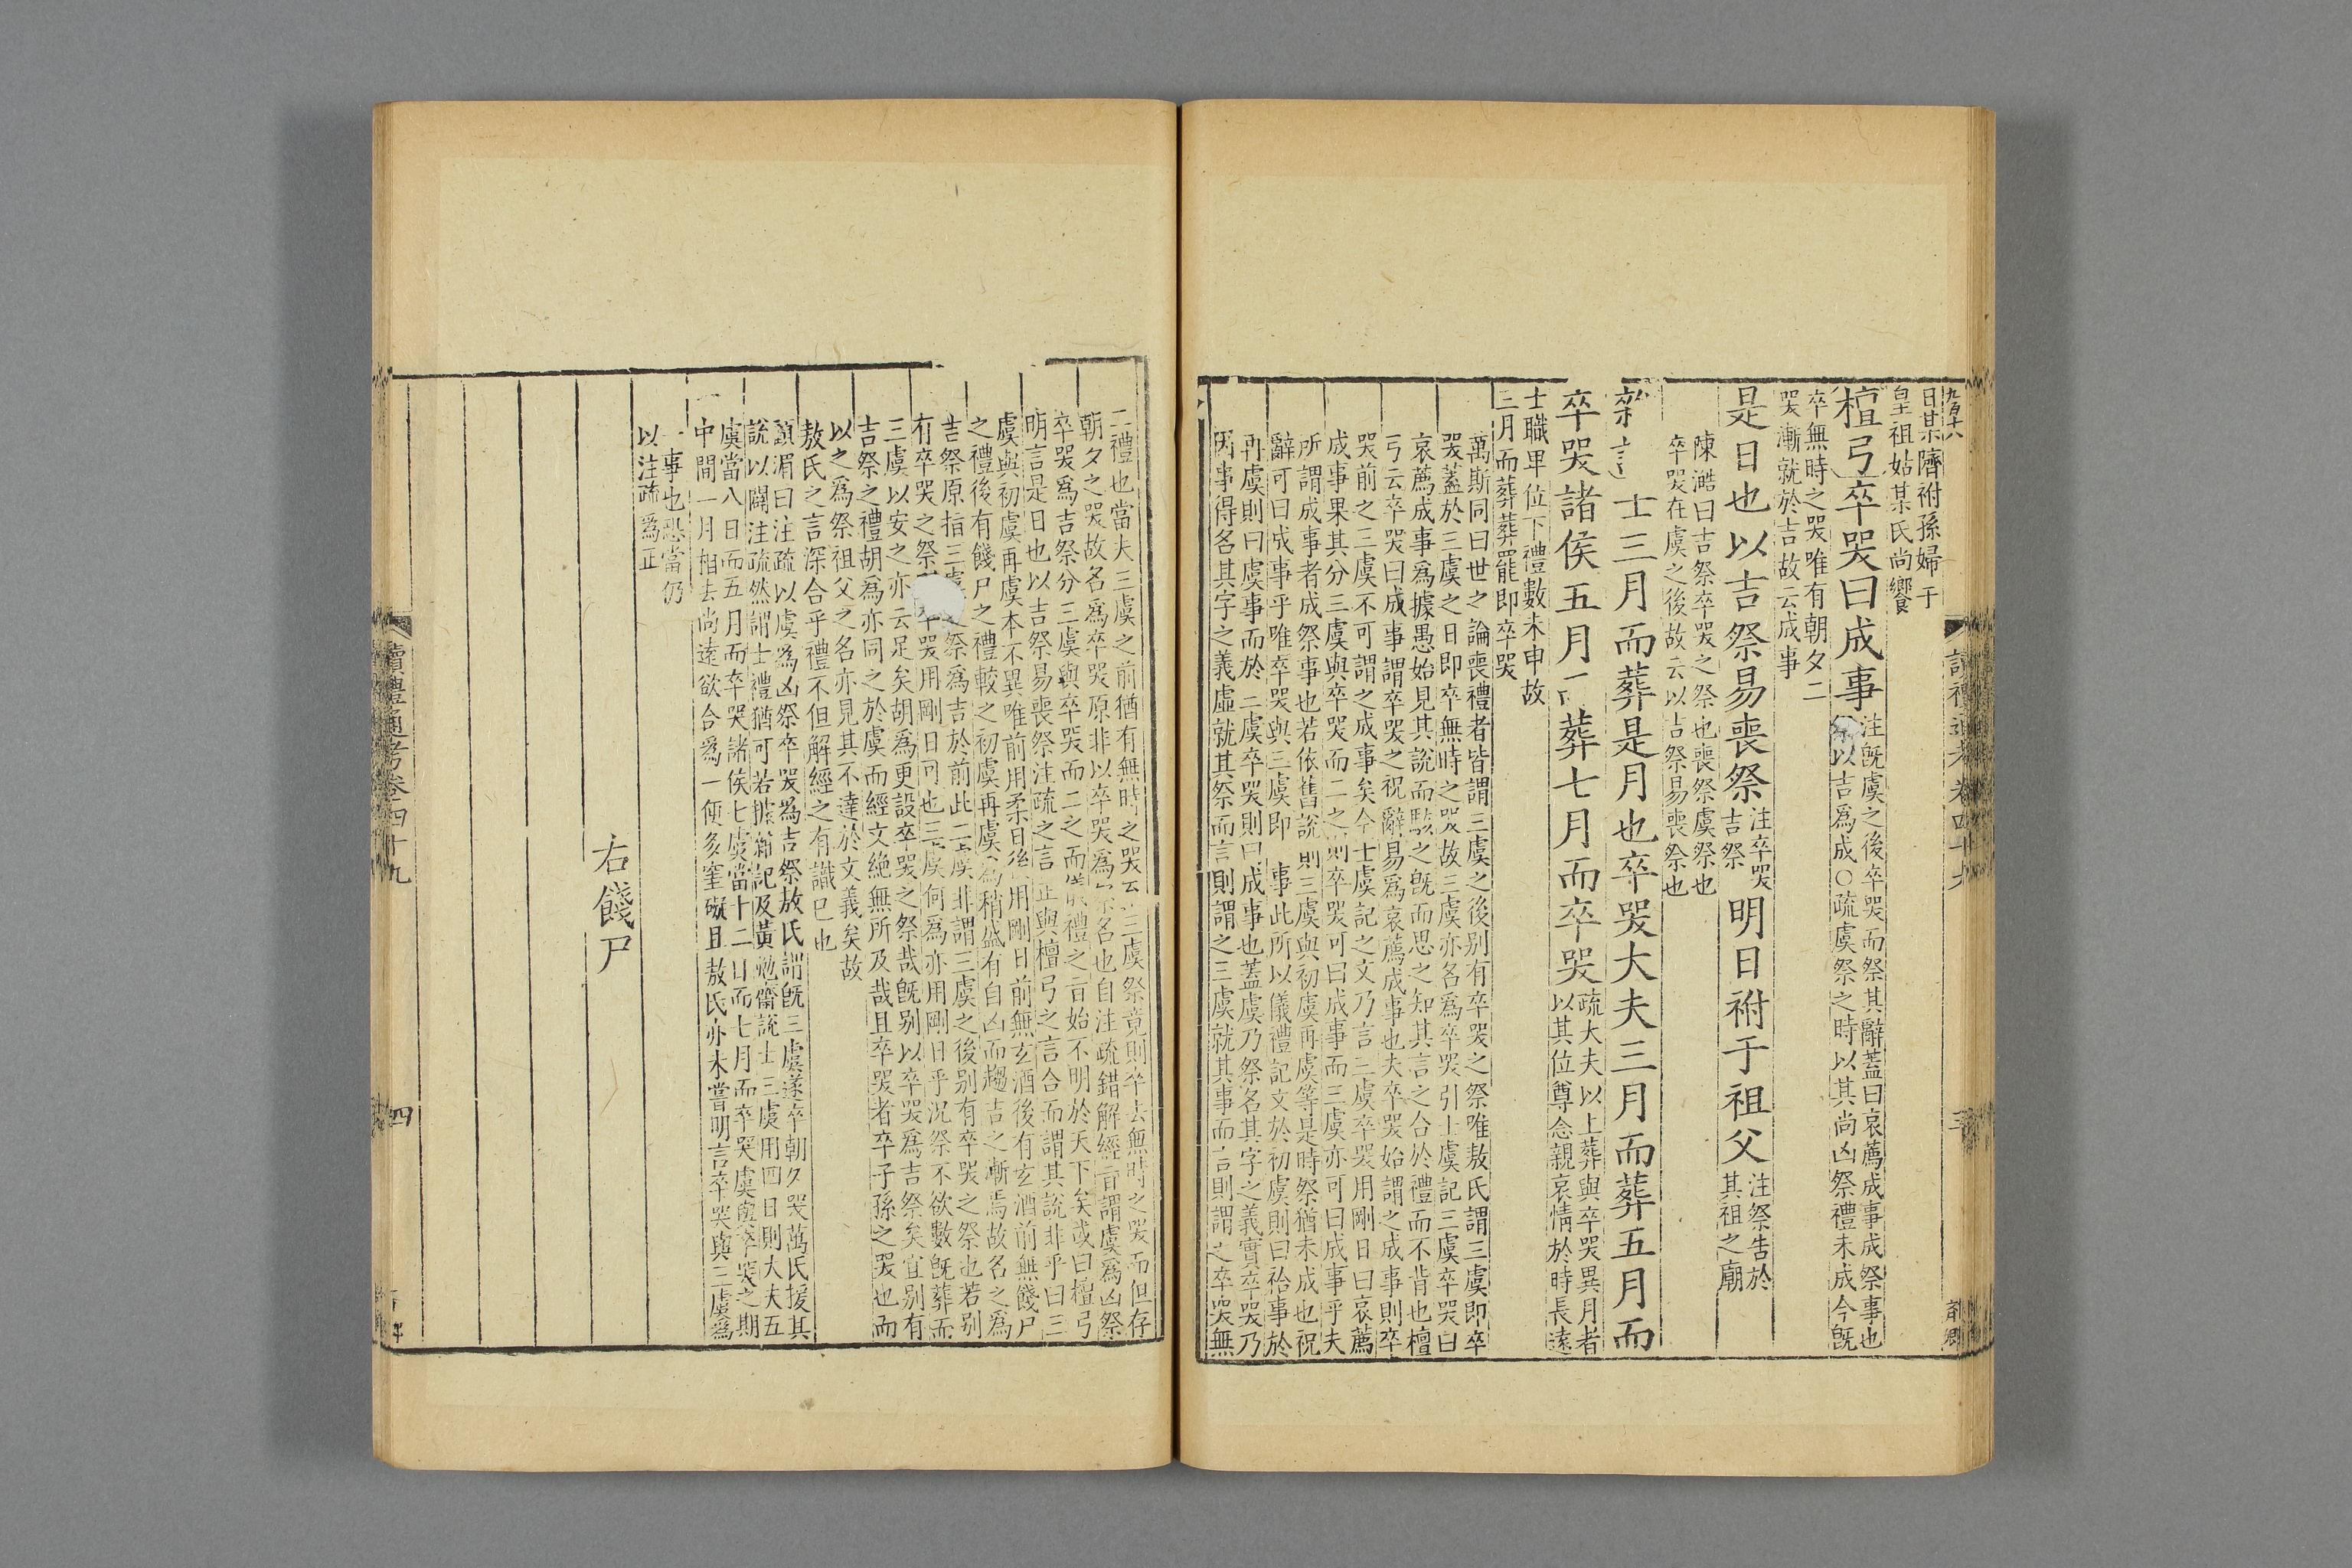 九百十八
日某隮祔孫婦于
皇祖姑某氏尚饗
檀弓卒哭曰成事
注旣虞之後卒哭而祭其辭蓋曰哀薦成事成祭事也
祭以吉爲成○疏虞祭之時以其尚凶祭禮未成今旣
卒無時之哭唯有朝夕二
哭漸就於吉故云成事
是日也以吉祭易喪祭
注卒哭
吉祭
明日祔于祖父
注祭告於
其祖之廟
陳澔曰吉祭卒哭之祭也喪祭虞祭也
卒哭在虞之後故云以吉祭易喪祭也
士三月而葬是月也卒哭大夫三月而葬五月而
卒哭諸侯五月 葬七月而卒哭
疏大夫以上葬與卒哭異月者
以其位尊念親哀情於時長遠
士職卑位下禮數未申故
三月而葬葬罷即卒哭
萬斯同曰世之論喪禮者皆謂三虞之後别有卒哭之祭唯敖氏謂三虞即卒
哭蓋於三虞之日即卒無時之哭故三虞亦名爲卒哭引士虞記三虞卒哭曰
哀薦成事爲據愚始見其說而駭之旣而思之知其言之合於禮而不背也檀
弓云卒哭曰成事謂卒哭之祝辭易爲哀薦成事也夫卒哭始謂之成事則卒
哭前之三虞不可謂之成事矣今士虞記之文乃言三虞卒哭用剛日曰哀薦
成事果其分三虞與卒哭而二之則卒哭可曰成事而三虞亦可曰成事乎夫
所謂成事者成祭事也若依舊說則三虞與初虞再虞等是時祭猶未成也祝
辭可曰成事乎唯卒哭與三虞即 事此所以儀禮記文於初虞則曰祫事於
再虞則曰虞事而於 二虞卒哭則曰成事也蓋虞乃祭名其字之義實卒哭乃
因事得名其字之義虛就其祭而言則謂之三虞就其事而言則謂之卒哭無
二禮也當大三虞之前猶有無時之哭 三虞祭竟則卒去無時之哭而但存
朝夕之哭故名爲卒哭原非以卒哭爲 名也自注疏錯解經 謂虞爲凶祭
卒哭爲吉祭分三虞與卒哭而二之而儀禮之旨始不明於天下矣或曰檀弓
明言是日也以吉祭易喪祭注疏之言正與檀弓之言合而謂其說非乎曰三
虞與初虞再虞本不異唯前用柔日後用剛日前無玄酒後有玄酒前無餞尸
之禮後有餞尸之禮較之初虞再虞 稍盛有自凶而趨吉之漸焉故名之爲
吉祭原指三虞 祭爲吉於前此二虞非謂三虞之後别有卒哭之祭也若别
有卒哭之祭 卒哭用剛日可也三虞何爲亦用剛日乎況祭不欲數旣葬而
三虞以安之亦云足矣胡爲更設卒哭之祭哉旣别以卒哭爲吉祭矣宜别有
吉祭之禮胡爲亦同之於虞而經文絶無所及哉且卒哭者卒子孫之哭也而
以之爲祭祖父之名亦見其不達於文義矣故
敖氏之言深合乎禮不但解經之有識已也
顧湄曰注疏以虞爲凶祭卒哭爲吉祭敖氏謂旣三虞遂卒朝夕哭萬氏援其
說以闢注疏然謂士禮猶可若據雜記及黃勉齋說士三虞用四日則大夫五
虞當八日而五月而卒哭諸侯七虞當十二日而七月而卒哭虞與卒哭之期
中間一月相去尚遠欲合爲一便多窒礙且敖氏亦未嘗明言卒哭與三虞爲
一事也恐當仍
以注疏爲正
右餞尸
讀禮通考卷四十九
四
讀禮通考卷四十九
三